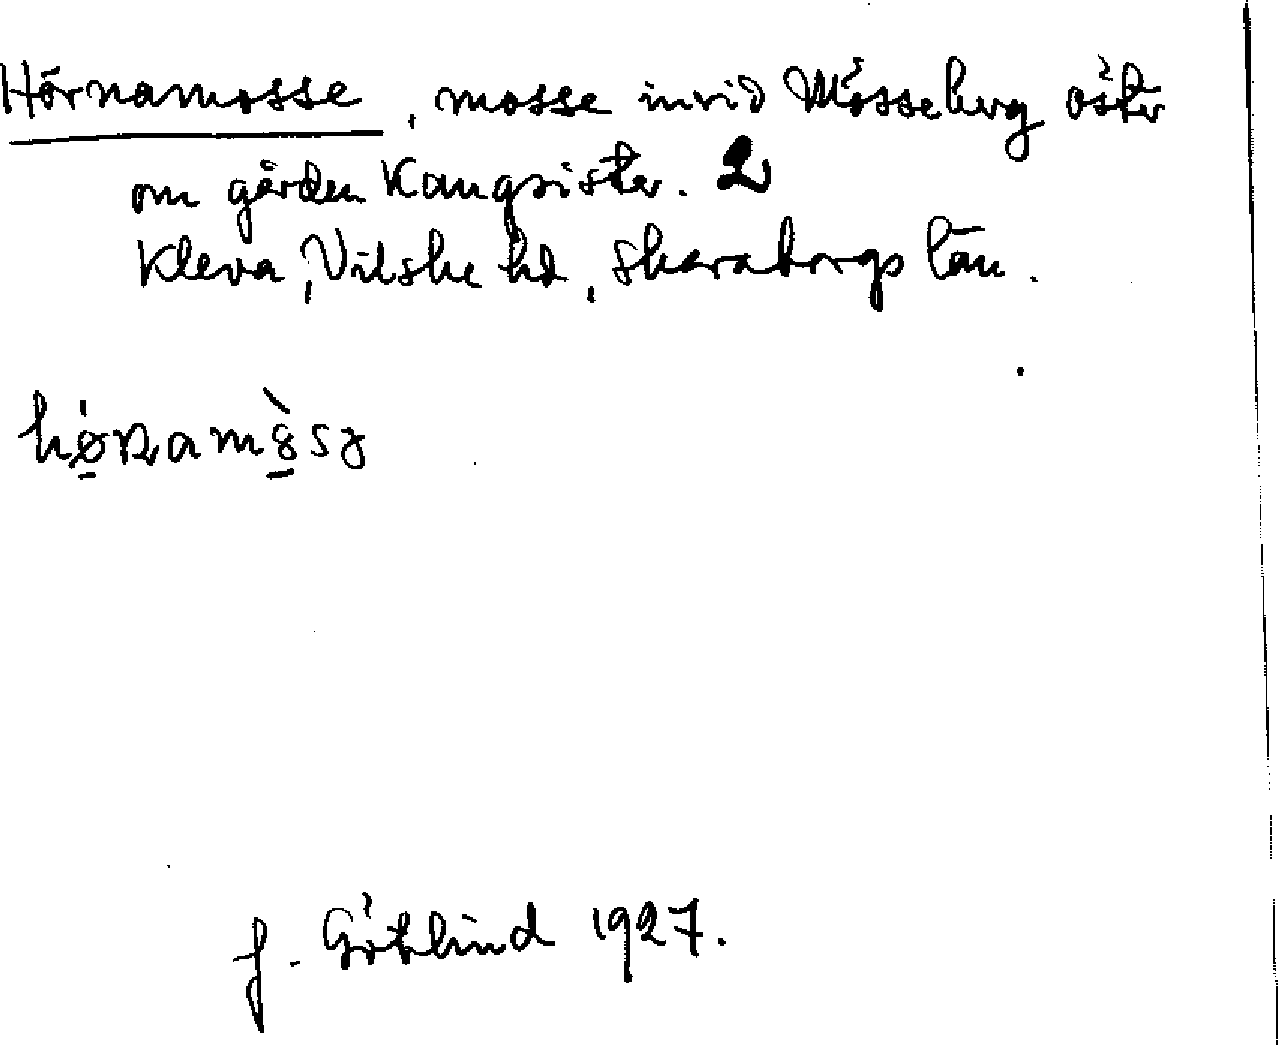 Hörnamosse, mosse invid Mösseberg öster
om gården Kangsister. 2
Kleva, Vilske hd, Skaraborgs län.
J. Götlind 1927.